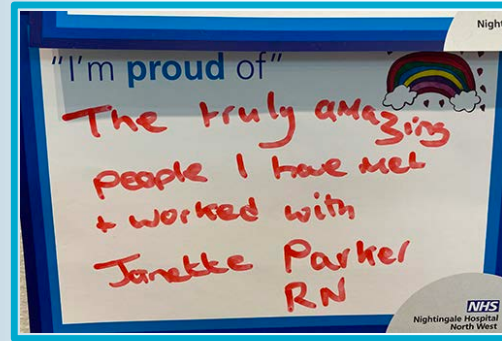 Night
"I'm proud of"
The truly amazing
people I have met
+ worked with
Janette Parker
RN
NHS
Nightingale Hospital
North West